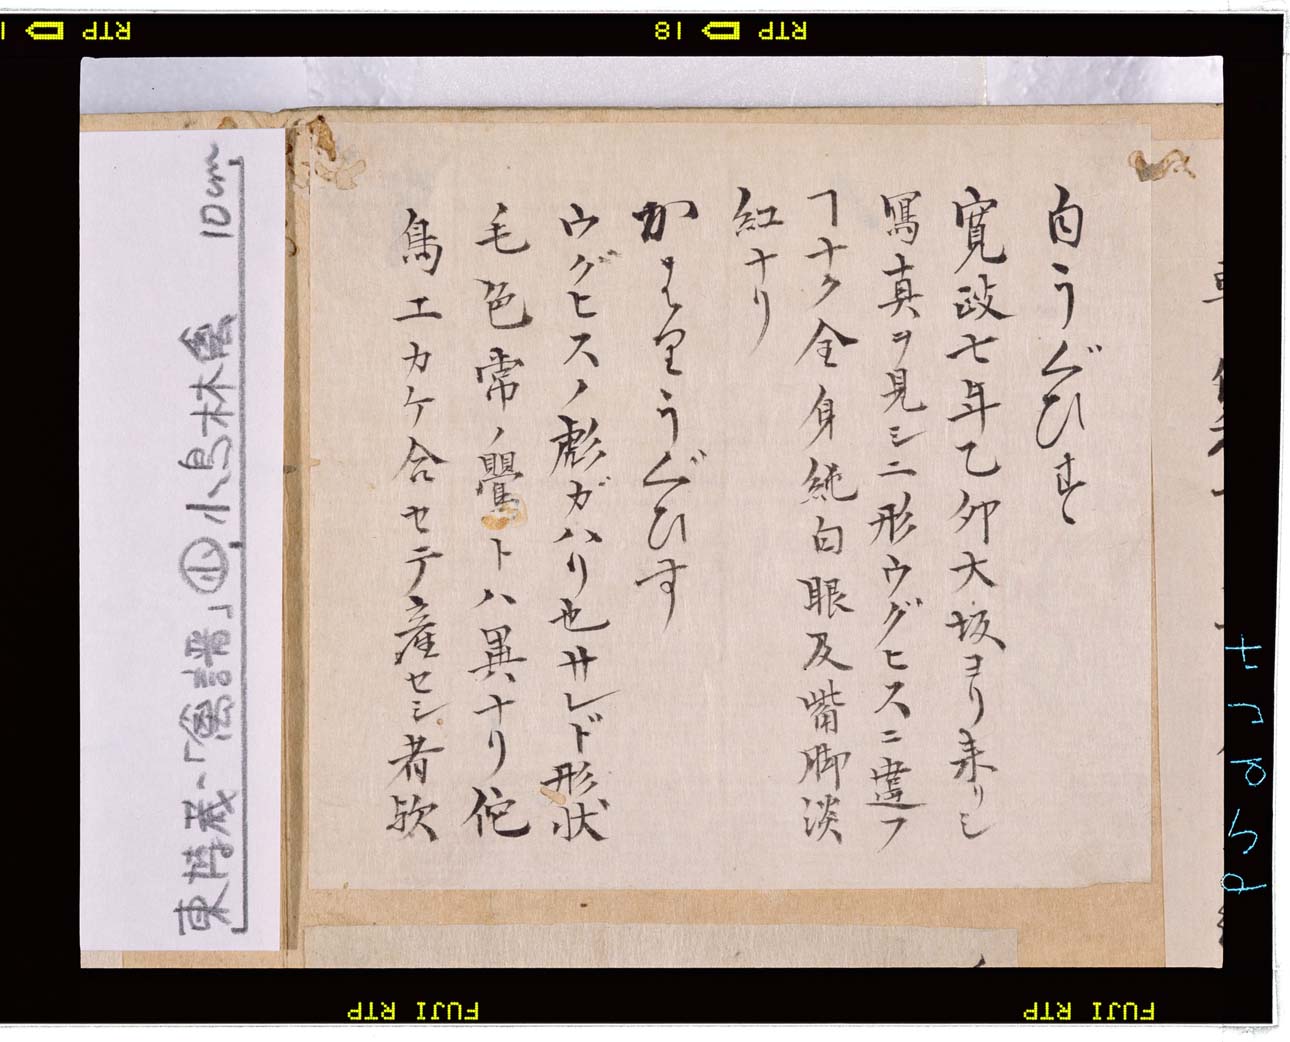 白うぐひすゝ
寛政七年乙卯大坂ヨリ来リシ
寫真ヲ見シニ形ウグヒスニ違フ
ヿナク全身純白眼及觜脚淡
紅ナリ
かはりうぐひす
ウグヒスノ彪ガハリ也サレド形状
毛色常ノ鸎トハ異ナリ佗
鳥エカケ合セテ産セシ者歟
東博蔵・「禽譜」小鳥林禽 10cm
RTP
18 RTP
FUJI RTP
FUJI RTP